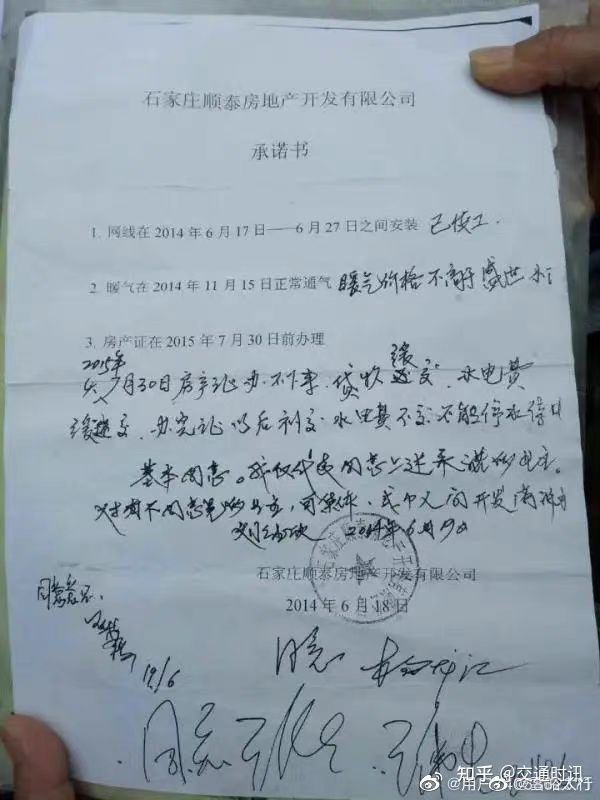 石家庄顺泰房地产开发有限公司
承诺书
1. 网线在 2014 年 6 月 17 日——6 月 27 日之间安装 已竣工.
2. 暖气在 2014 年 11 月 15 日正常通气 暖气价格不高于盛世
3. 房产证在 2015 年 7 月 30 日前办理
2015年
7月30日房产证办不下来, 贷款缓交, 水电费
缓交, 办完证以后补交, 水电费不交不能停水停
基本同意。我仅代表同意上述承诺的业主。
对有不同意见的业主,可集体、或个人向开发商
2014年6月19日
石家庄顺泰房地产开发有限公司
2014 年 6 月 18 日
同意
19/6
同意
同意
知乎 @交通时讯